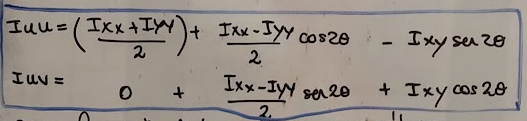 Iuu = (Ixx + Iyy / 2) + Ixx - Iyy / 2 cos2θ - Ixy sen 2θ
Iuv = 0 + Ixx - Iyy / 2 sen 2θ + Ixy cos 2θ